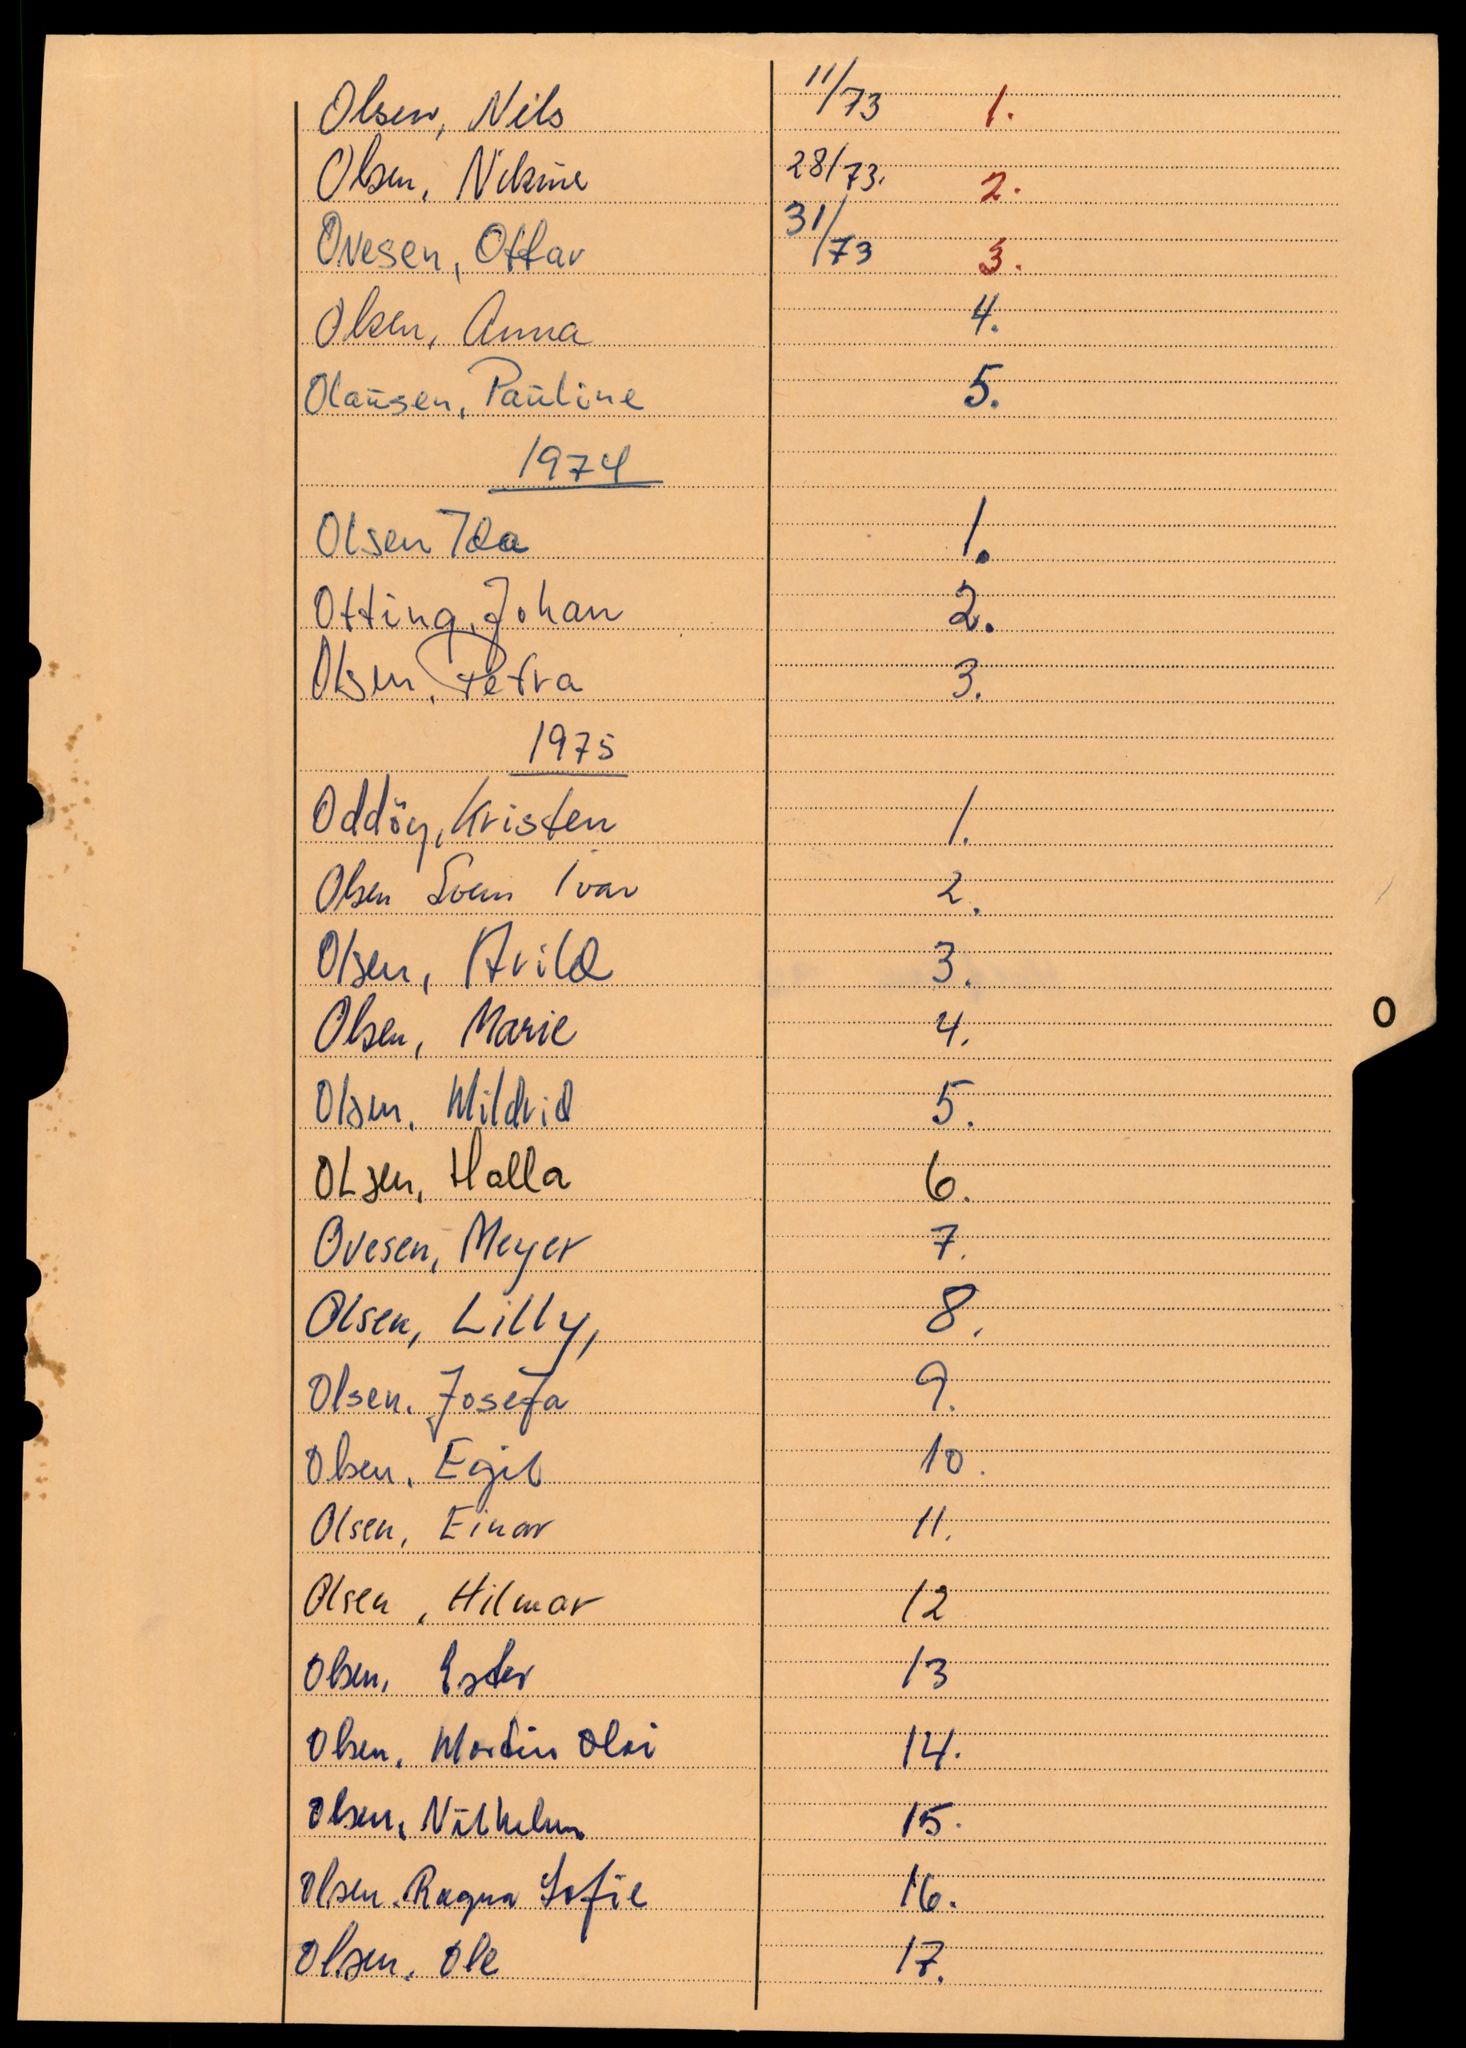 Olsen, Nils 11/73 1.
Olsen, Nikine 28/73. 2.
Ovesen, Ottar 31/73 3.
Olsen, Anna 4.
Olaŭsen, Paŭline 5.
1974
Olsen Ida 1.
Otting, Johan 2.
Olsen, Petra 3.
1975
Oddöy, Kristen 1.
Olsen Svein Ivar 2.
Olsen, Arild 3.
Olsen, Marie 4.
O
Olsen, Mildrid 5.
Olsen, Halla 6.
Ovesen, Meyer 7.
Olsen, Lilly, 8.
Olsen. Josefa 9.
Olsen, Egil 10.
Olsen, Einar 11.
Olsen, Hilmar 12
Olsen, Ester 13
Olsen, Martin Olai 14.
Olsen, 15.
Olsen. Ragna Sofie 16.
Olsen. Ole 17.